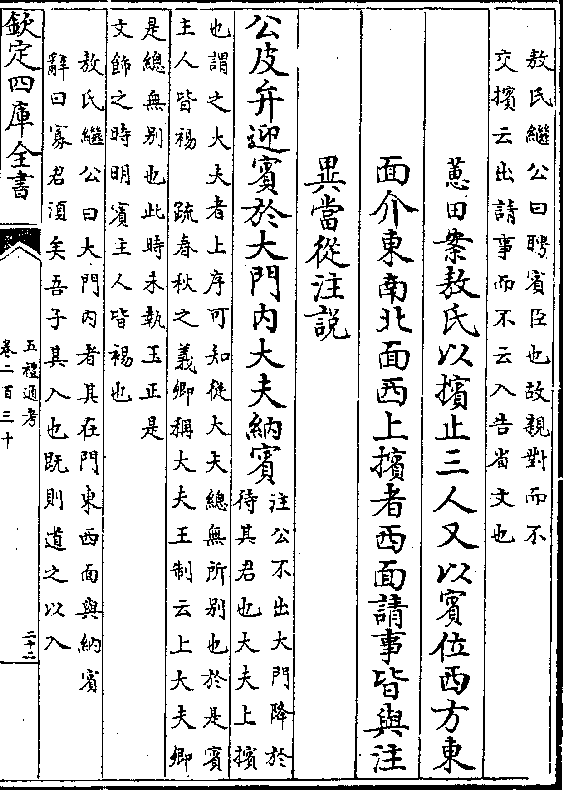 敖氏繼公曰聘賓臣也故親對而不
交擯云出請事而不云入告省文也
蕙田案敖氏以擯止三人又以賓位西方東
面介東南北面西上擯者西面請事皆與注
異當從注說
公皮弁迎賓於大門内大夫納賓
注公不出大門降於
待其君也大夫上擯
也謂之大夫者上序可知從大夫總無所别也於是賓
主人皆裼 疏春秋之義卿稱大夫王制云上大夫卿
是總無别也此時未執玉正是
文飾之時明賓主人皆裼也
敖氏繼公曰大門内者其在門東西面與納賓
辭曰寡君須矣吾子其入也旣則道之以入
欽定四庫全書
五禮通考
卷二百三十
二十二